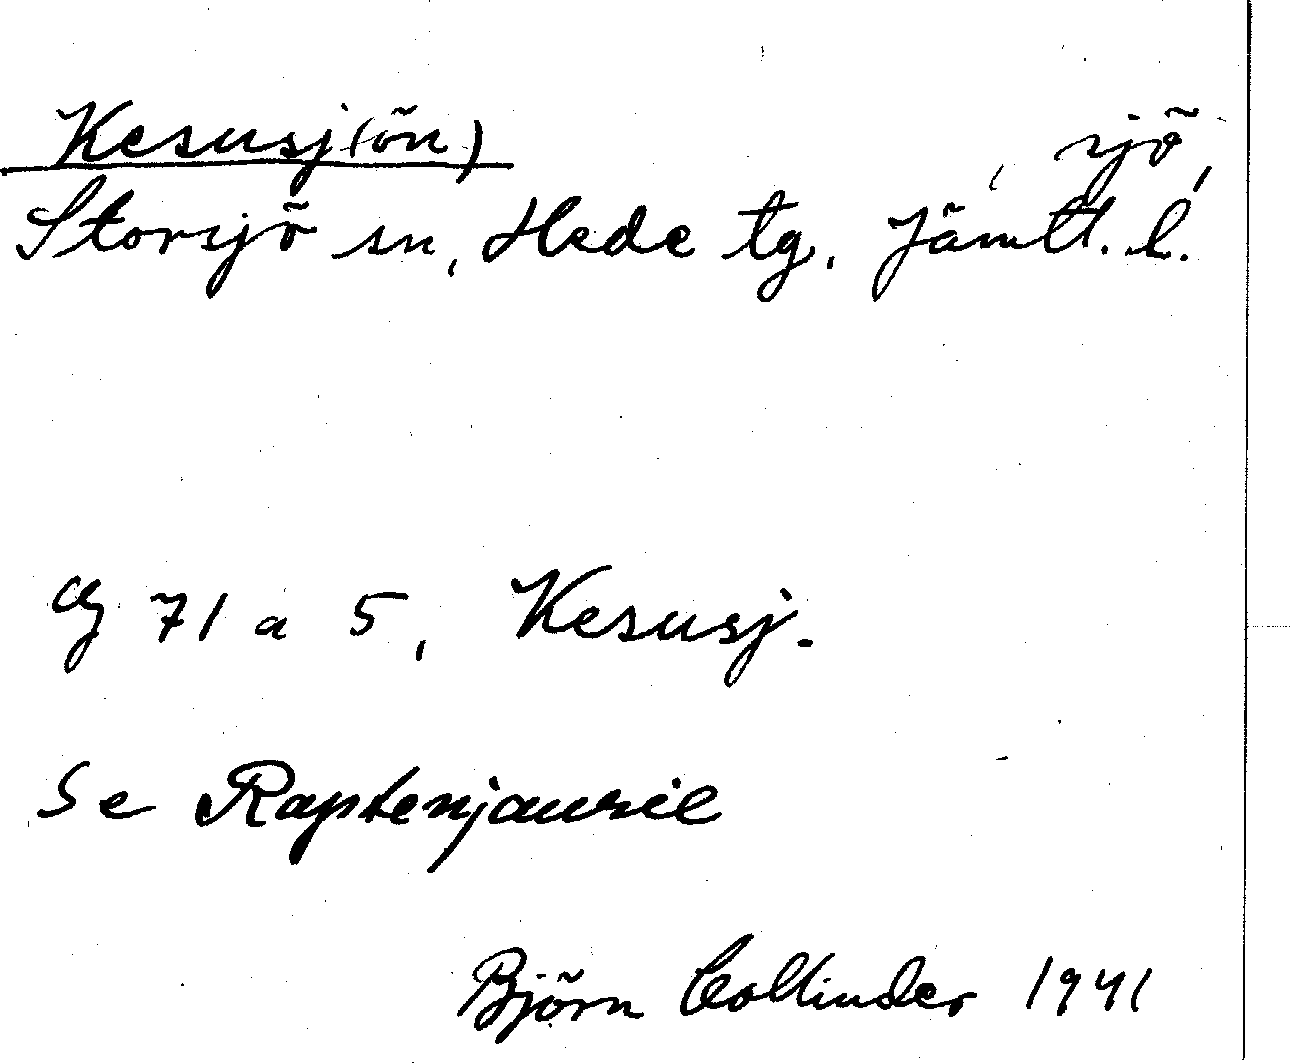 Kesusj(ön) sjö,
Storsjö sn, Hede tg. Jämtl. l.
Cg 71 a 5, Kesusj.
Se Raptenjaurie
Björn Collinder 1941